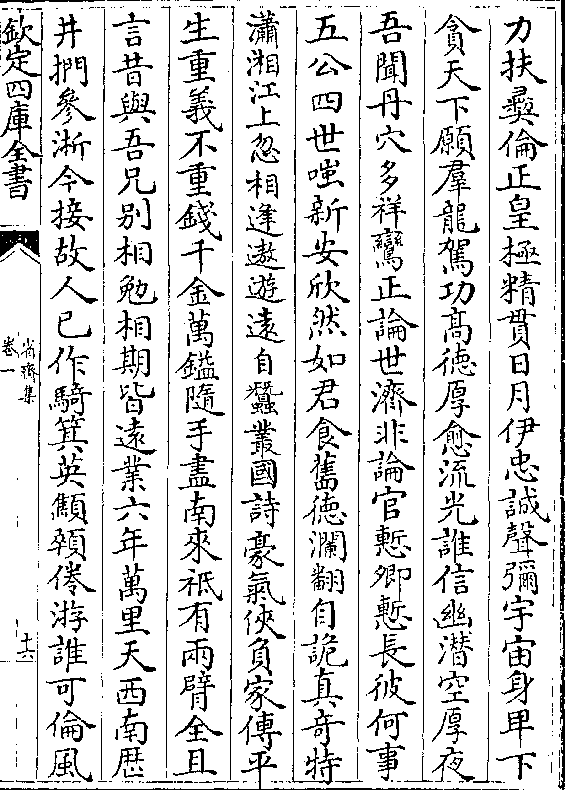 力扶彛倫正皇極精貫日月伊忠誠聲彌宇宙身甲下
貪天下願羣龍駕功髙徳厚愈流光誰信幽潜空厚夜
吾聞丹穴多祥鸞正論世濟非論官慙卿慙長彼何事
五公四世嗤新安欣然如君食舊徳瀾翻自詭真奇特
瀟湘江上忽相逢遨遊逺自蠶叢國詩豪氣俠負家傳平
生重義不重錢千金萬鎰隨手盡南來祗有兩臂全且
言昔與吾兄别相勉相期皆逺業六年萬里天西南歴
井捫參淅今接故人已作騎箕英顦顇倦游誰可倫風
欽定四庫全書
省齋集
卷一
十六